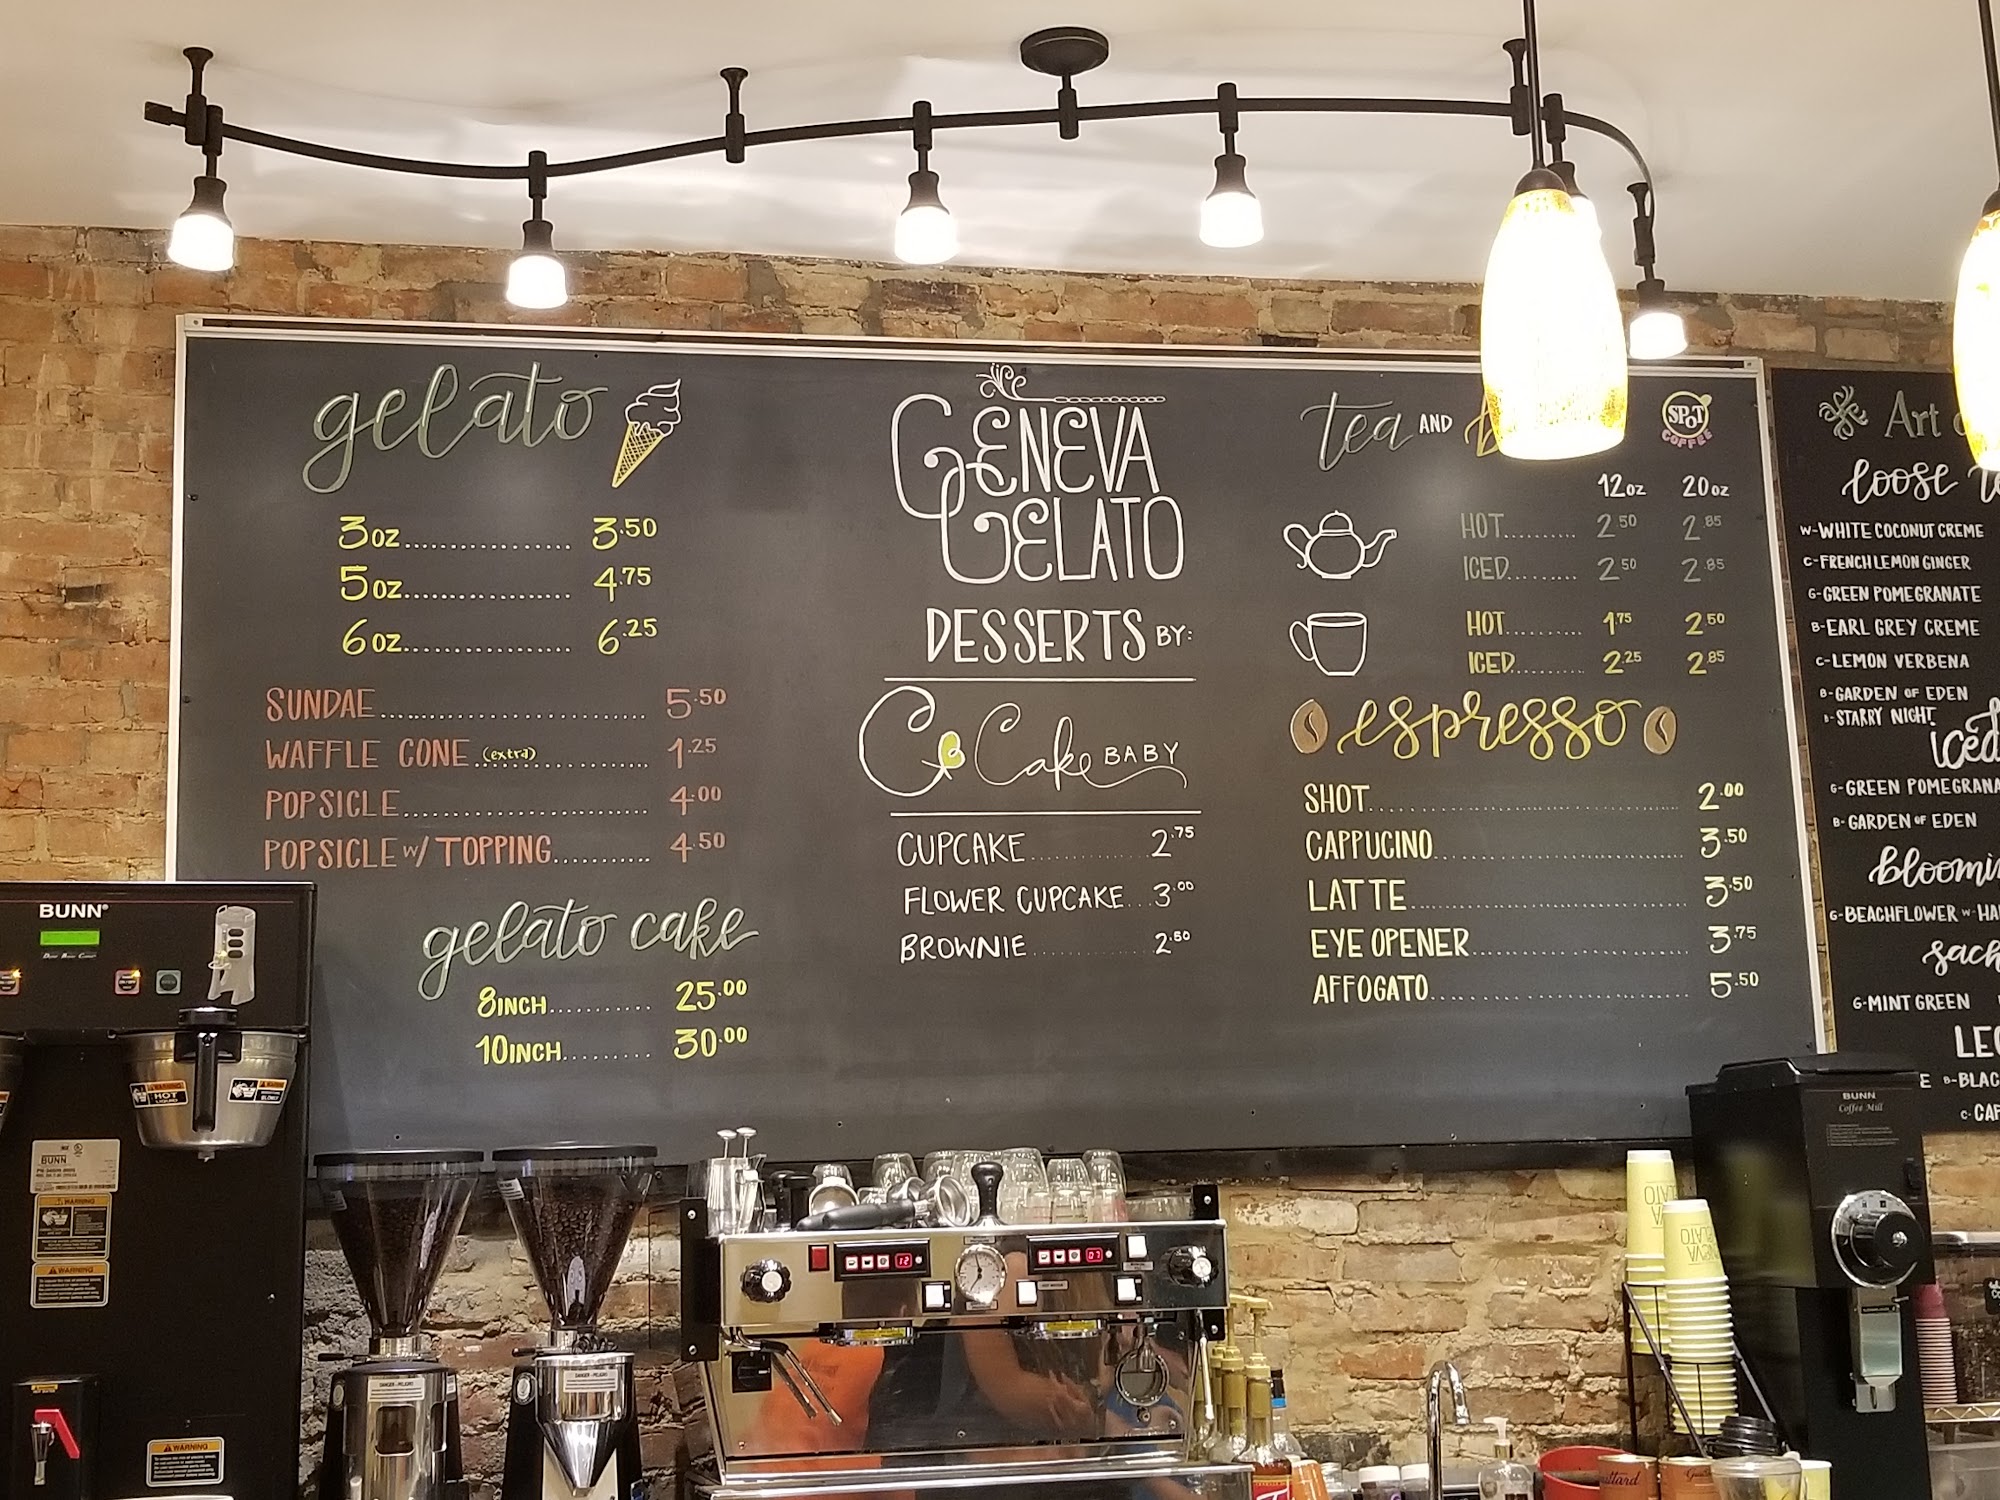 gelato
3oz................. 3.50
5oz................. 4.75
6oz................. 6.25
SUNDAE........................ 5.50
WAFFLE CONE (extra)............ 1.25
POPSICLE...................... 4.00
POPSICLE w/ TOPPING.......... 4.50
gelato cake
8INCH........... 25.00
10INCH......... 30.00
GENEVA
GELATO
DESSERTS BY:
CB Cake BABY
CUPCAKE............ 2.75
FLOWER CUPCAKE... 3.00
BROWNIE............ 2.50
tea AND
SPOT
COFFEE
12oz 20oz
HOT.......... 2.50 2.85
ICED......... 2.50 2.85
HOT.......... 1.75 2.50
ICED......... 2.25 2.85
espresso
SHOT.............................. 2.00
CAPPUCINO........................ 3.50
LATTE............................ 3.50
EYE OPENER...................... 3.75
AFFOGATO........................ 5.50
Art
loose
W-WHITE COCONUT CREME
C-FRENCH LEMON GINGER
G-GREEN POMEGRANATE
B-EARL GREY CREME
C-LEMON VERBENA
B-GARDEN OF EDEN
B-STARRY NIGHT
iced
G-GREEN
B-GARDEN OF EDEN
G-BEACHFLOWER
G-MINT GREEN
BUNN
WARNING
HOT
LIQUID
WARNING
BUNN
WARNING
WARNING
WARNING
DANGER-PELIGRO
DANGER-PELIGRO
12
07
BUNN
Coffee Mill
GENEVA
GELATO